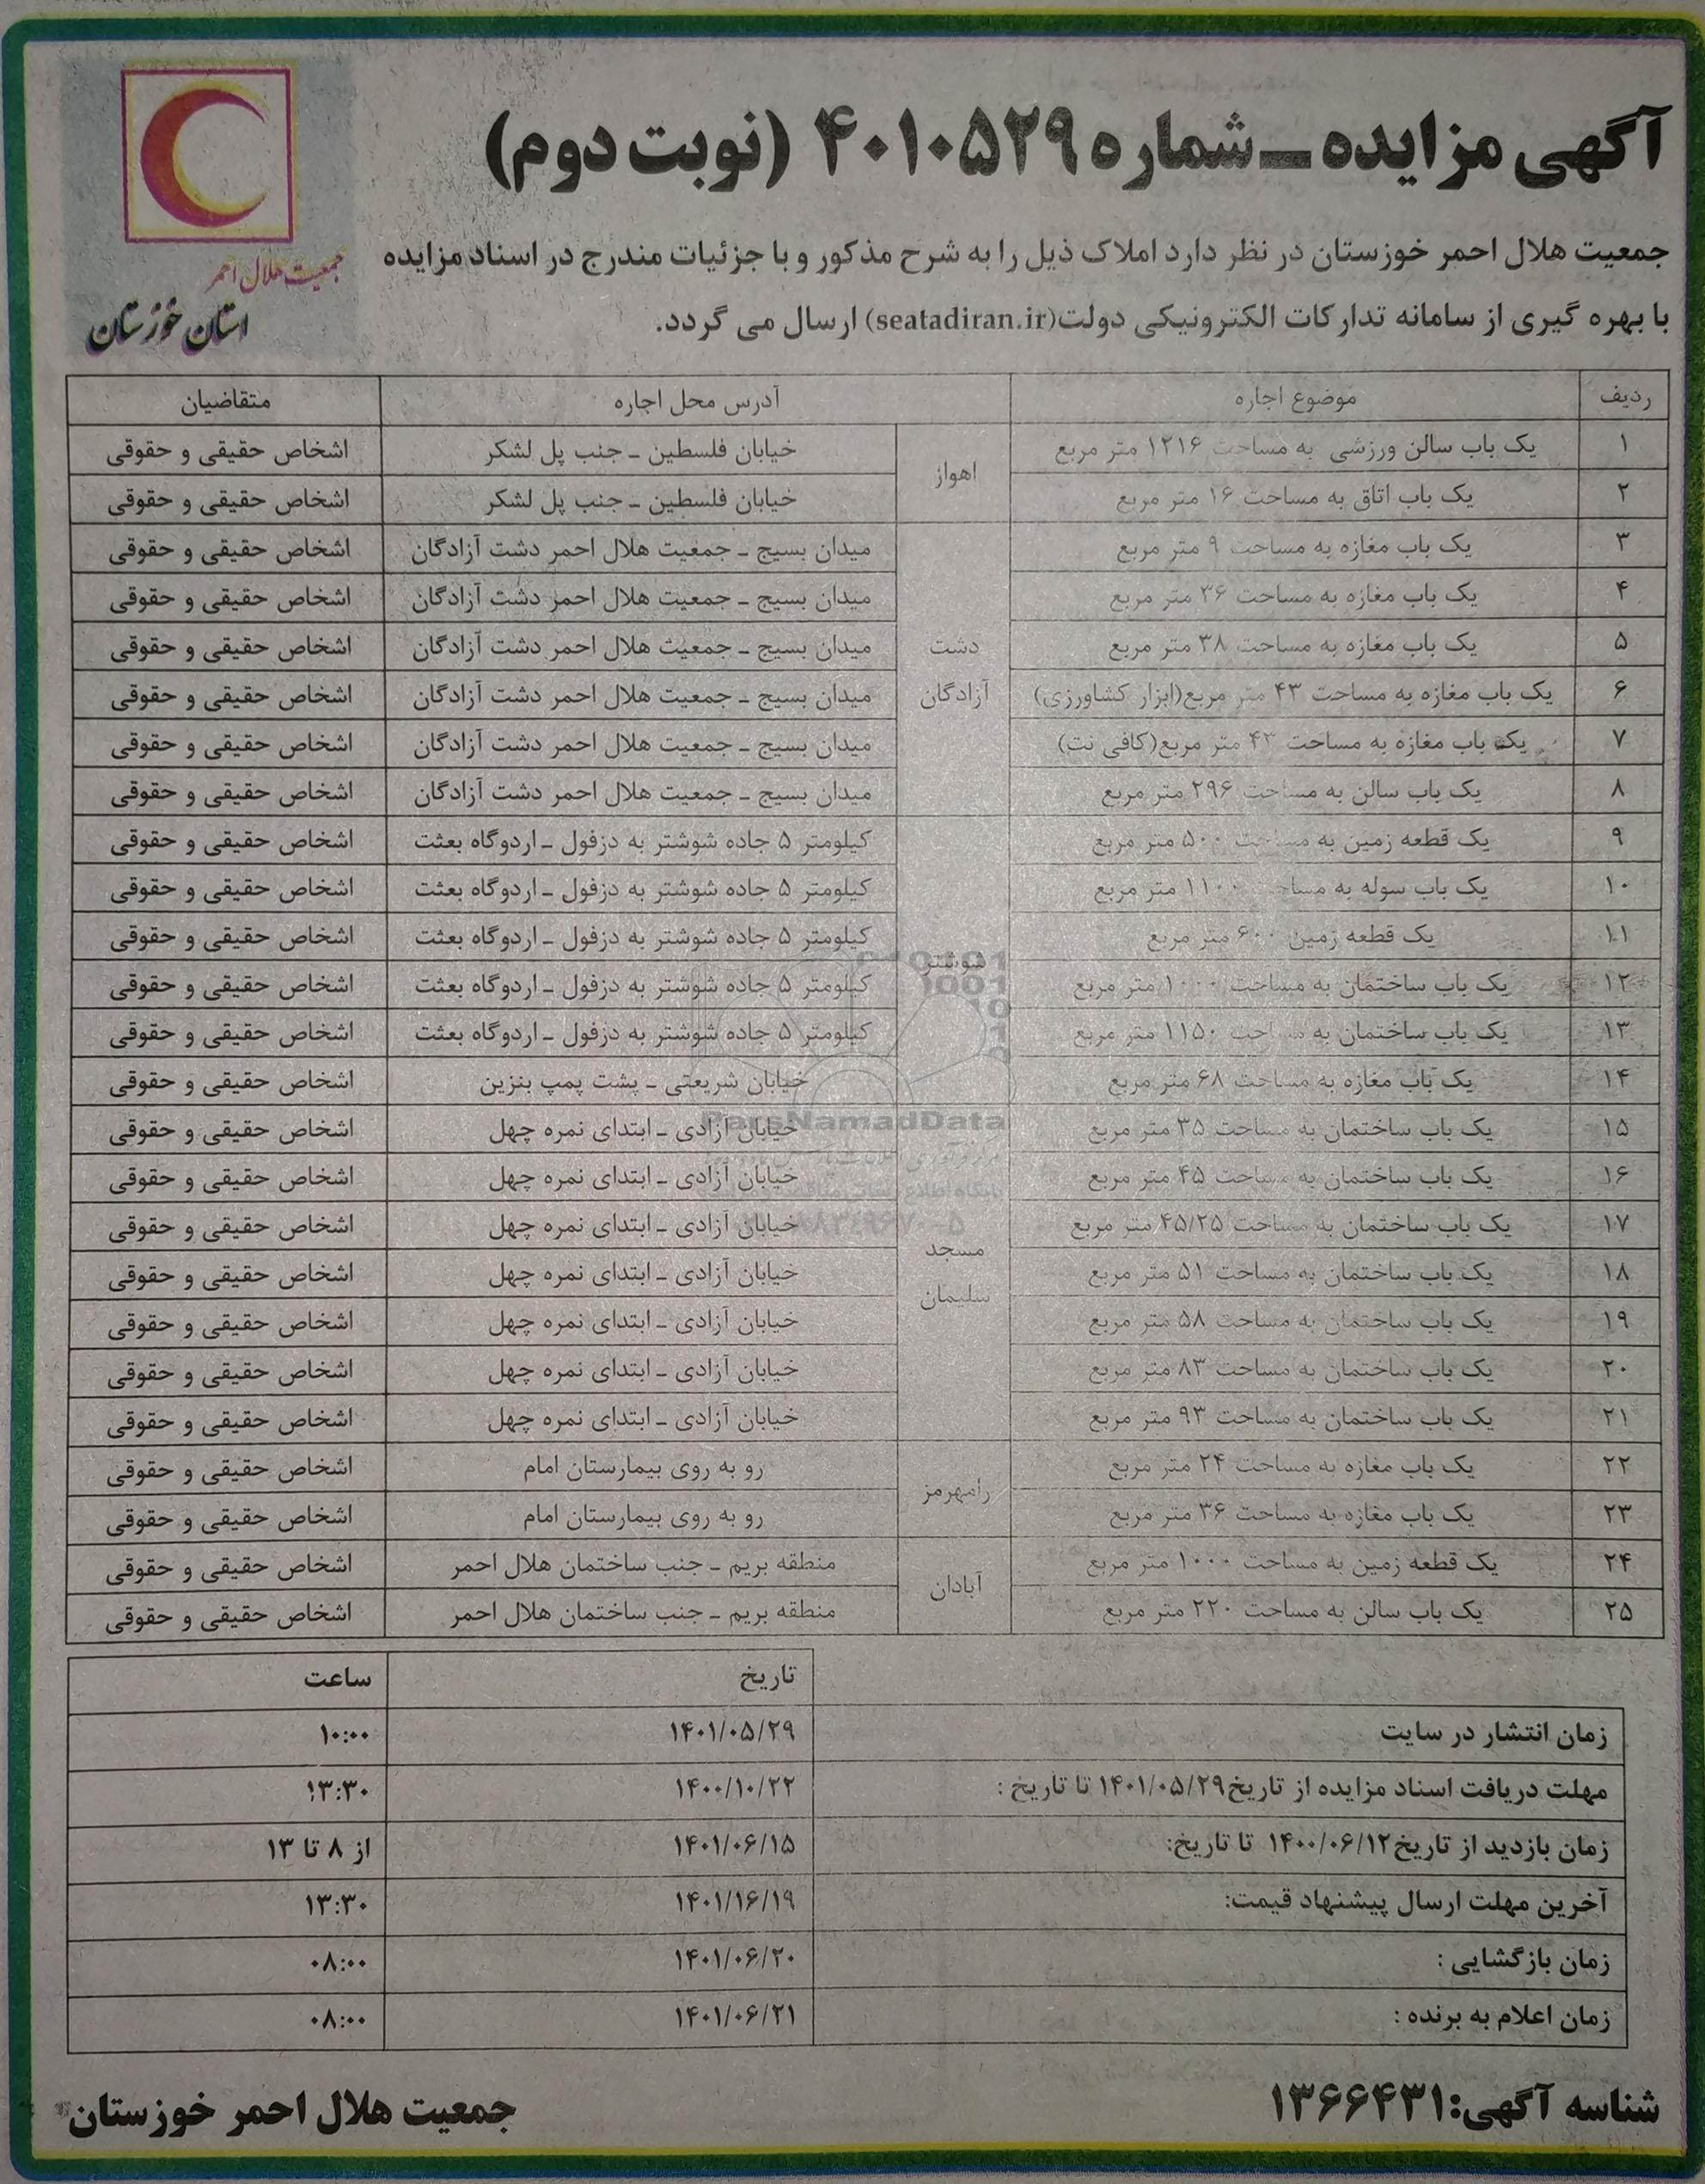 آگهی مزایده ـ شماره ۴۰۱۰۵۲۹ (نوبت دوم)
جمعیت هلال احمر
استان خوزستان
جمعیت هلال احمر خوزستان در نظر دارد املاک ذیل را به شرح مذکور و با جزئیات مندرج در اسناد مزایده
با بهره گیری از سامانه تدارکات الکترونیکی دولت(seatadiran.ir) ارسال می گردد.
ردیف موضوع اجاره آدرس محل اجاره متقاضیان
۱ یک باب سالن ورزشی به مساحت ۱۲۱۶ متر مربع اهواز خیابان فلسطین ـ جنب پل لشکر اشخاص حقیقی و حقوقی
۲ یک باب اتاق به مساحت ۱۶ متر مربع خیابان فلسطین ـ جنب پل لشکر اشخاص حقیقی و حقوقی
۳ یک باب مغازه به مساحت ۹ متر مربع دشت آزادگان میدان بسیج ـ جمعیت هلال احمر دشت آزادگان اشخاص حقیقی و حقوقی
۴ یک باب مغازه به مساحت ۳۶ متر مربع میدان بسیج ـ جمعیت هلال احمر دشت آزادگان اشخاص حقیقی و حقوقی
۵ یک باب مغازه به مساحت ۳۸ متر مربع میدان بسیج ـ جمعیت هلال احمر دشت آزادگان اشخاص حقیقی و حقوقی
۶ یک باب مغازه به مساحت ۴۳ متر مربع(ابزار کشاورزی) میدان بسیج ـ جمعیت هلال احمر دشت آزادگان اشخاص حقیقی و حقوقی
۷ یک باب مغازه به مساحت ۴۳ متر مربع(کافی نت) میدان بسیج ـ جمعیت هلال احمر دشت آزادگان اشخاص حقیقی و حقوقی
۸ یک باب سالن به مساحت ۲۹۶ متر مربع میدان بسیج ـ جمعیت هلال احمر دشت آزادگان اشخاص حقیقی و حقوقی
۹ یک قطعه زمین به مساحت ۵۰۰ متر مربع شوشتر کیلومتر ۵ جاده شوشتر به دزفول ـ اردوگاه بعثت اشخاص حقیقی و حقوقی
۱۰ یک باب سوله به مساحت ۱۱۰۰ متر مربع کیلومتر ۵ جاده شوشتر به دزفول ـ اردوگاه بعثت اشخاص حقیقی و حقوقی
۱۱ یک قطعه زمین ۶۰۰ متر مربع کیلومتر ۵ جاده شوشتر به دزفول ـ اردوگاه بعثت اشخاص حقیقی و حقوقی
۱۲ یک باب ساختمان به مساحت ۱۰۰۰ متر مربع کیلومتر ۵ جاده شوشتر به دزفول ـ اردوگاه بعثت اشخاص حقیقی و حقوقی
۱۳ یک باب ساختمان به مساحت ۱۱۵۰ متر مربع کیلومتر ۵ جاده شوشتر به دزفول ـ اردوگاه بعثت اشخاص حقیقی و حقوقی
۱۴ یک باب مغازه به مساحت ۶۸ متر مربع خیابان شریعتی ـ پشت پمپ بنزین اشخاص حقیقی و حقوقی
۱۵ یک باب ساختمان به مساحت ۳۵ متر مربع مسجد سلیمان خیابان آزادی ـ ابتدای نمره چهل اشخاص حقیقی و حقوقی
۱۶ یک باب ساختمان به مساحت ۴۵ متر مربع خیابان آزادی ـ ابتدای نمره چهل اشخاص حقیقی و حقوقی
۱۷ یک باب ساختمان به مساحت ۴۵/۲۵ متر مربع خیابان آزادی ـ ابتدای نمره چهل اشخاص حقیقی و حقوقی
۱۸ یک باب ساختمان به مساحت ۵۱ متر مربع خیابان آزادی ـ ابتدای نمره چهل اشخاص حقیقی و حقوقی
۱۹ یک باب ساختمان به مساحت ۵۸ متر مربع خیابان آزادی ـ ابتدای نمره چهل اشخاص حقیقی و حقوقی
۲۰ یک باب ساختمان به مساحت ۸۳ متر مربع خیابان آزادی ـ ابتدای نمره چهل اشخاص حقیقی و حقوقی
۲۱ یک باب ساختمان به مساحت ۹۳ متر مربع خیابان آزادی ـ ابتدای نمره چهل اشخاص حقیقی و حقوقی
۲۲ یک باب مغازه به مساحت ۲۴ متر مربع رامهرمز رو به روی بیمارستان امام اشخاص حقیقی و حقوقی
۲۳ یک باب مغازه به مساحت ۳۶ متر مربع رو به روی بیمارستان امام اشخاص حقیقی و حقوقی
۲۴ یک قطعه زمین به مساحت ۱۰۰۰ متر مربع آبادان منطقه بریم ـ جنب ساختمان هلال احمر اشخاص حقیقی و حقوقی
۲۵ یک باب سالن به مساحت ۲۲۰ متر مربع منطقه بریم ـ جنب ساختمان هلال احمر اشخاص حقیقی و حقوقی
ParsNamadData
تاریخ ساعت
زمان انتشار در سایت ۱۴۰۱/۰۵/۲۹ ۱۰:۰۰
مهلت دریافت اسناد مزایده از تاریخ ۱۴۰۱/۰۵/۲۹ تا تاریخ : ۱۴۰۰/۱۰/۲۲ ۱۳:۳۰
زمان بازدید از تاریخ ۱۴۰۰/۰۶/۱۲ تا تاریخ: ۱۴۰۱/۰۶/۱۵ از ۸ تا ۱۳
آخرین مهلت ارسال پیشنهاد قیمت: ۱۴۰۱/۱۶/۱۹ ۱۳:۳۰
زمان بازگشایی : ۱۴۰۱/۰۶/۲۰ ۰۸:۰۰
زمان اعلام به برنده : ۱۴۰۱/۰۶/۲۱ ۰۸:۰۰
شناسه آگهی: ۱۳۶۶۴۳۱
جمعیت هلال احمر خوزستان